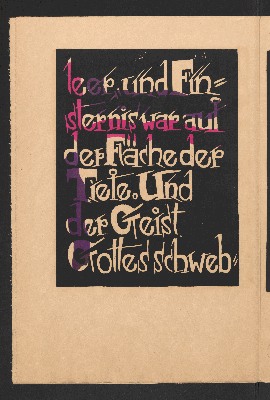 leer, und Fin=
sternis war auf
der Fläche der
Tiefe. Und
der Geist
Gottes schweb=